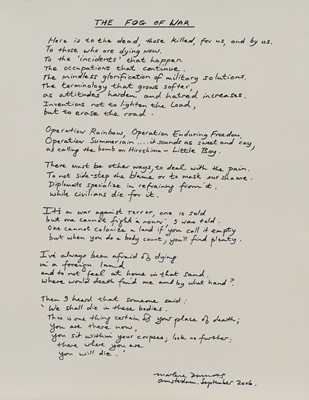 THE FOG OF WAR
Here is to the dead, those killed, for us, and by us.
To those who are dying now.
To the 'incidents' that happen.
The occupations that continue.
The mindless glorification of military solutions.
The terminology that grows softer,
as attitudes harden and hatred increases.
Inventions not to lighten the load,
but to erase the road.
Operation Rainbow, Operation Enduring Freedom,
Operation Summerrain.... it sounds as sweet and coy,
as calling the bomb on Hiroshima – Little Boy.
There must be other ways, to deal with the pain.
To not side-step the blame or to mask our shame.
Diplomats specialize in refraining from it,
while civilians die for it.
It's a war against terror, one is sold
but one cannot fight a noun; I was told.
One cannot colonize a land if you call it empty
but when you do a body count, you'll find plenty.
I've always been afraid of dying
in a foreign land
and to not feel at home in that sand.
Where would death find me and by what hand?
Then I heard that someone said:
'We shall die in these bodies.
This is one thing certain of your place of death;
you are there now,
you sit within your corpse; look no further:
there where you are
you will die.'
Marlene Dumas
Amsterdam. September 2006.